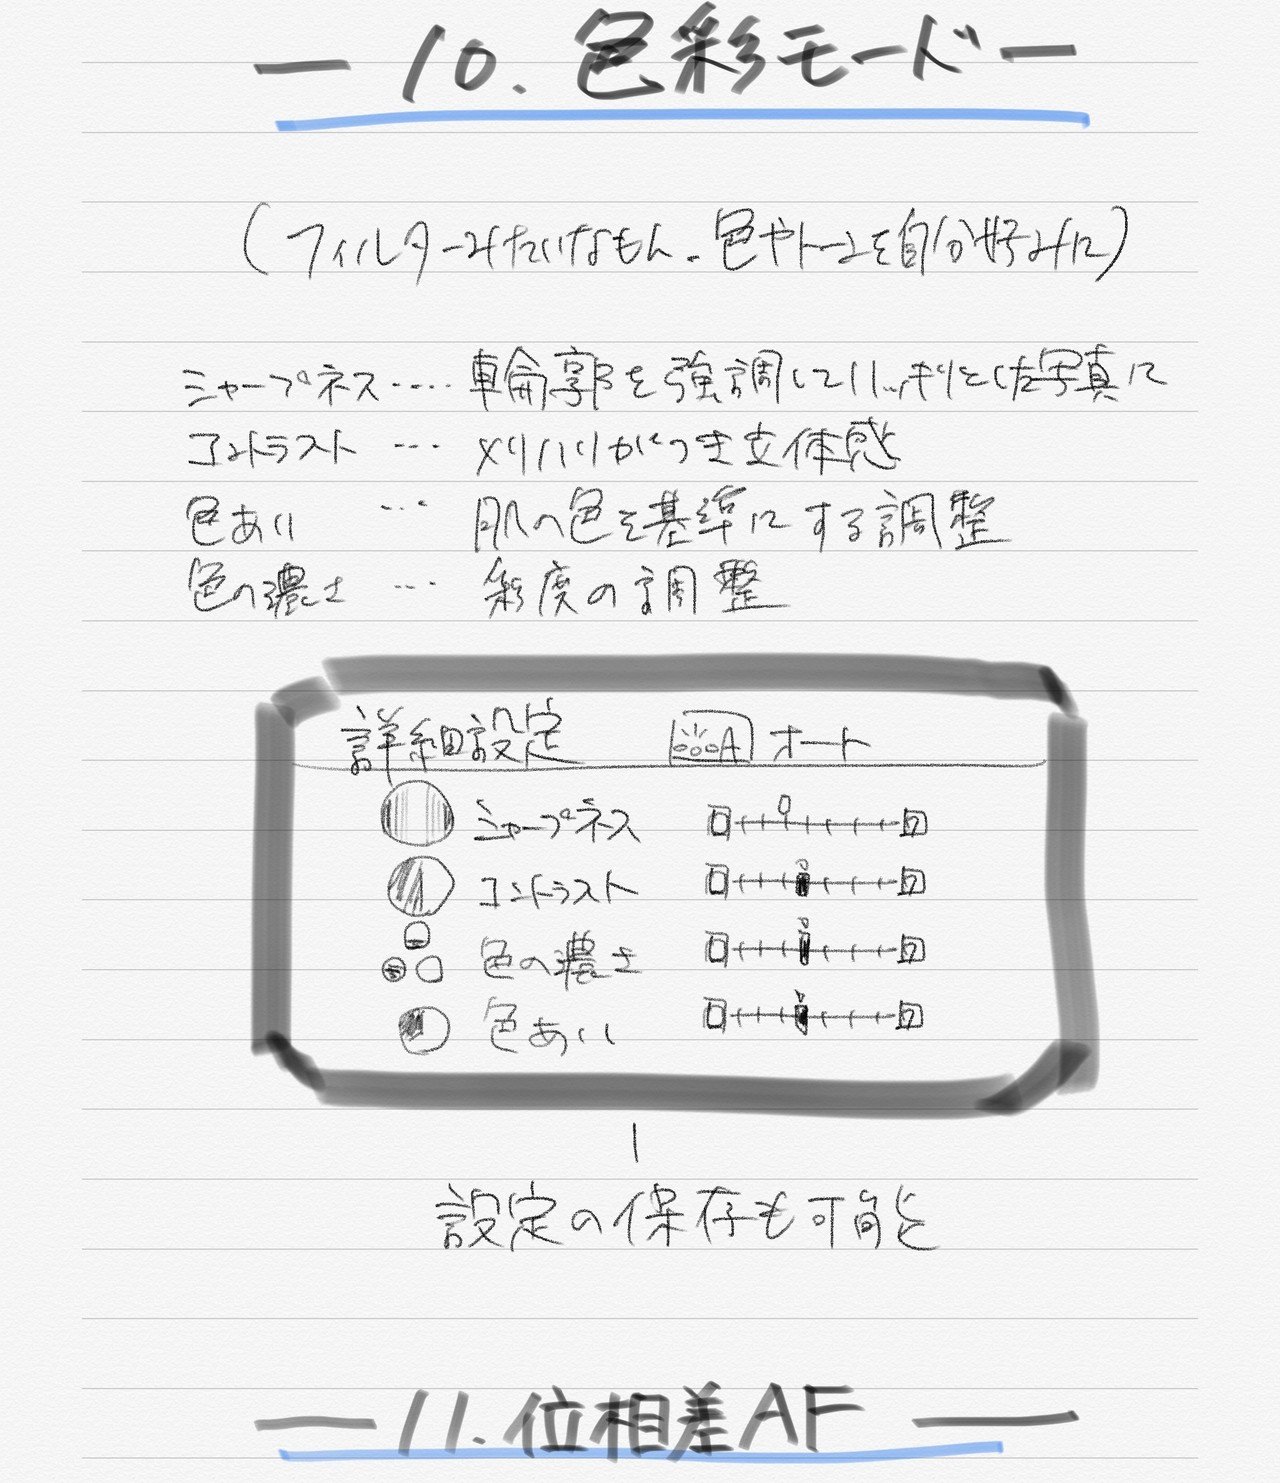 — 10. 色彩モード —
(フィルターみたいなもん。色やトーンを自分好みに)
シャープネス‥‥ 輪郭を強調してハッキリとした写真に
コントラスト … メリハリがつき立体感
色あい … 肌の色を基準にする調整
色の濃さ … 彩度の調整
詳細設定 A オート
シャープネス
コントラスト
色の濃さ
色あい
設定の保存も可能
— 11. 位相差AF —